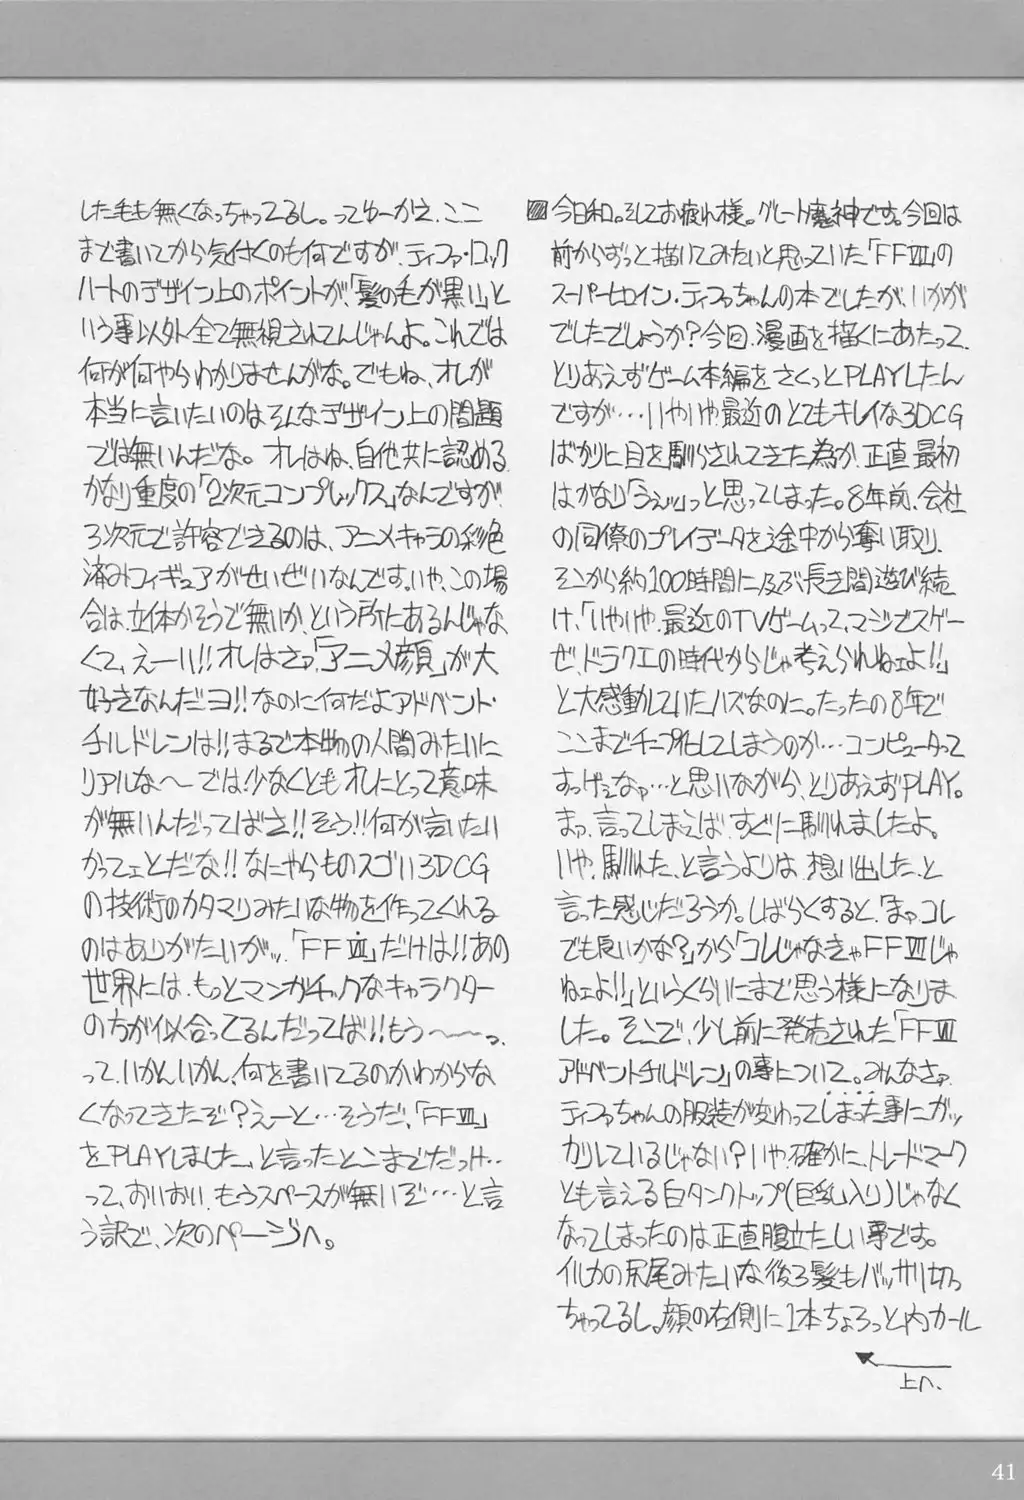 今日和。そしてお疲れ様。グレート魔神です。今回は
前からずっと描いてみたいと思っていた「FFⅦ」の
スーパーヒロイン・ティファちゃんの本でしたが、いかが
でしたでしょうか?今回、漫画を描くにあたって、
とりあえずゲーム本編をさくっとPLAYしたん
ですが…いやいや、最近のとてもキレイな3DCG
ばかりに目を馴らされてきた為か、正直、最初
はかなり「うぇッ」っと思ってしまった。8年前、会社
の同僚のプレイデータを途中から奪い取り、
そこから約100時間に及ぶ長き間遊び続
け、「いやいや、最近のTVゲームって、マジでスゲー
ぜ、ドラクエの時代からじゃ考えられねェよ!!」
と大感動していたハズなのに。たったの8年で
ここまでチープ化してしまうのか…コンピュータって
すっげぇなァ…と思いながら、とりあえずPLAY。
まァ、言ってしまえば、すぐに馴れましたよ。
いや、馴れた、と言うよりは、想い出した、と
言った感じだろうか。しばらくすると、「まァコレ
でも良いかな?」から「コレじゃなきゃFFⅦじゃ
ねェよ!!」というくらいにまで思う様になりま
した。そこで、少し前に発売された「FFⅦ
アドベントチルドレン」の事について。みんなさァ、
ティファちゃんの服装が変わってしまった事にガッ
カリしているじゃない?いや、確かに、トレードマーク
とも言える白タンクトップ(巨乳入り)じゃなく
なってしまったのは正直腹立たしい事です。
イルカの尻尾みたいな後ろ髪もバッサリ切っ
ちゃってるし。顔の右側に1本ちょろっと内カール
上へ、
した毛も無くなっちゃってるし。ってゆーかえ、ここ
まで書いてから気付くのも何ですが、ティファ・ロック
ハートのデザイン上のポイントが、「髪の毛が黒い」と
いう事以外全て無視されてんじゃんよ。これでは
何が何やらわかりませんがな。でもね、オレが
本当に言いたいのはそんなデザイン上の問題
では無いんだな。オレはね、自他共に認める、
かなり重度の「2次元コンプレックス」なんですが、
3次元で許容できるのは、アニメキャラの彩色
済みフィギュアがせいぜいなんです。いや、この場
合は、立体かそうで無いか、という所にあるんじゃな
くて、えーい!!オレはさァ、「アニメ顔」が大
好きなんだヨ!!なのに何だよアドベント・
チルドレンは!!まるで本物の人間みたいに
リアルな〜では!少なくともオレにとって意味
が無いんだってばさ!!そう!!何が言いたい
かってェとだな!!なにやらものスゴい3DCG
の技術のカタマリみたいな物を作ってくれる
のはありがたいがッ、「FFⅦ」だけは!!あの
世界には、もっとマンガチックなキャラクター
の方が似合ってるんだってば!!もう〜〜っ、
って、いかんいかん、何を書いてるのかわからな
くなってきたぞ?えーと…そうだ、「FFⅦ」
をPLAYしました、と言ったとこまでだっけ…
って、おいおい、もうスペースが無いぞ…と言
う訳で、次のページへ。
41